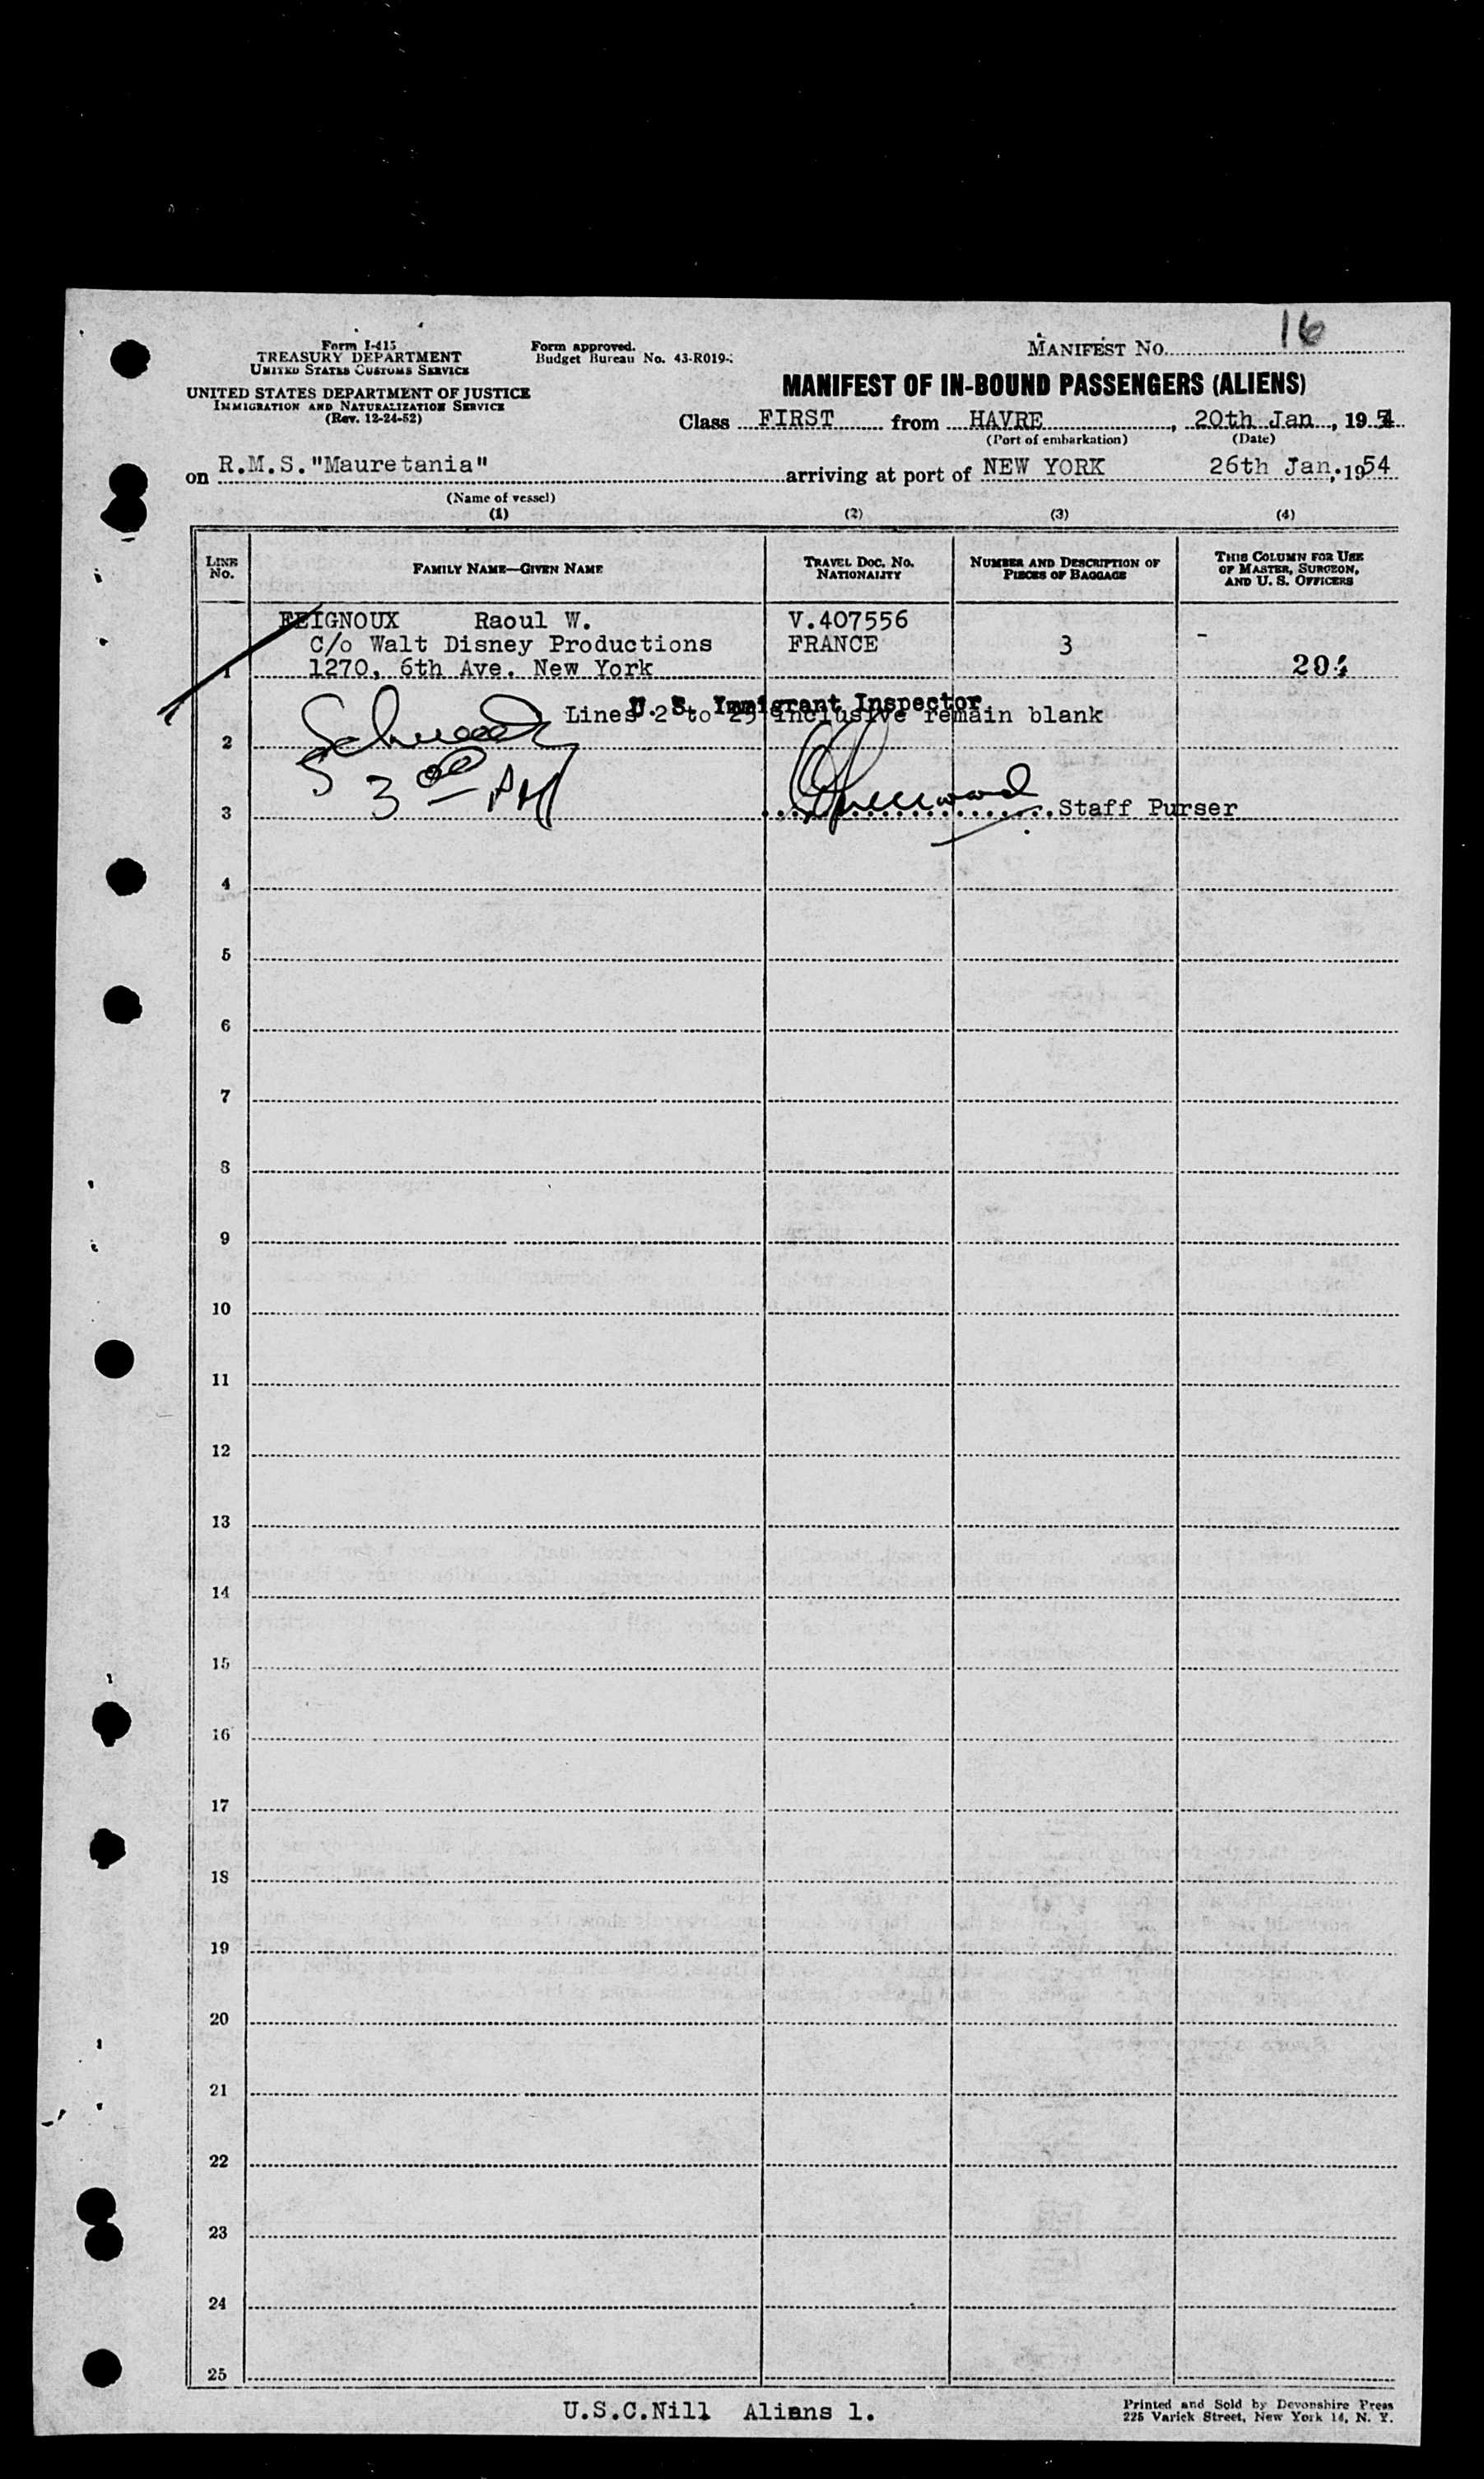 16
Form I-415
TREASURY DEPARTMENT
UNITED STATES CUSTOMS SERVICE
UNITED STATES DEPARTMENT OF JUSTICE
IMMIGRATION AND NATURALIZATION SERVICE
(Rev. 12-24-52)
Form approved.
Budget Bureau No. 43-R019-
MANIFEST NO.
MANIFEST OF IN-BOUND PASSENGERS (ALIENS)
Class FIRST from HAVRE, 20th Jan, 1954
(Port of embarkation) (Date)
on R.M.S."Mauretania" arriving at port of NEW YORK 26th Jan., 1954
(Name of vessel)
(1) (2) (3) (4)
LINE NO.
FAMILY NAME—GIVEN NAME
TRAVEL DOC. NO. NATIONALITY
NUMBER AND DESCRIPTION OF PIECES OF BAGGAGE
THIS COLUMN FOR USE OF MASTER, SURGEON, AND U. S. OFFICERS
FEIGNOUX Raoul W. V.407556
C/o Walt Disney Productions FRANCE 3 -
1 1270, 6th Ave. New York
U. S. Immigrant Inspector
Lines 2 to 25 inclusive remain blank
2
3 00 PM
3 Staff Purser
4
5
6
7
8
9
10
11
12
13
14
15
16
17
18
19
20
21
22
23
24
25
U.S.C.Nill Aliens 1.
Printed and Sold by Devonshire Press
225 Varick Street, New York 14, N. Y.